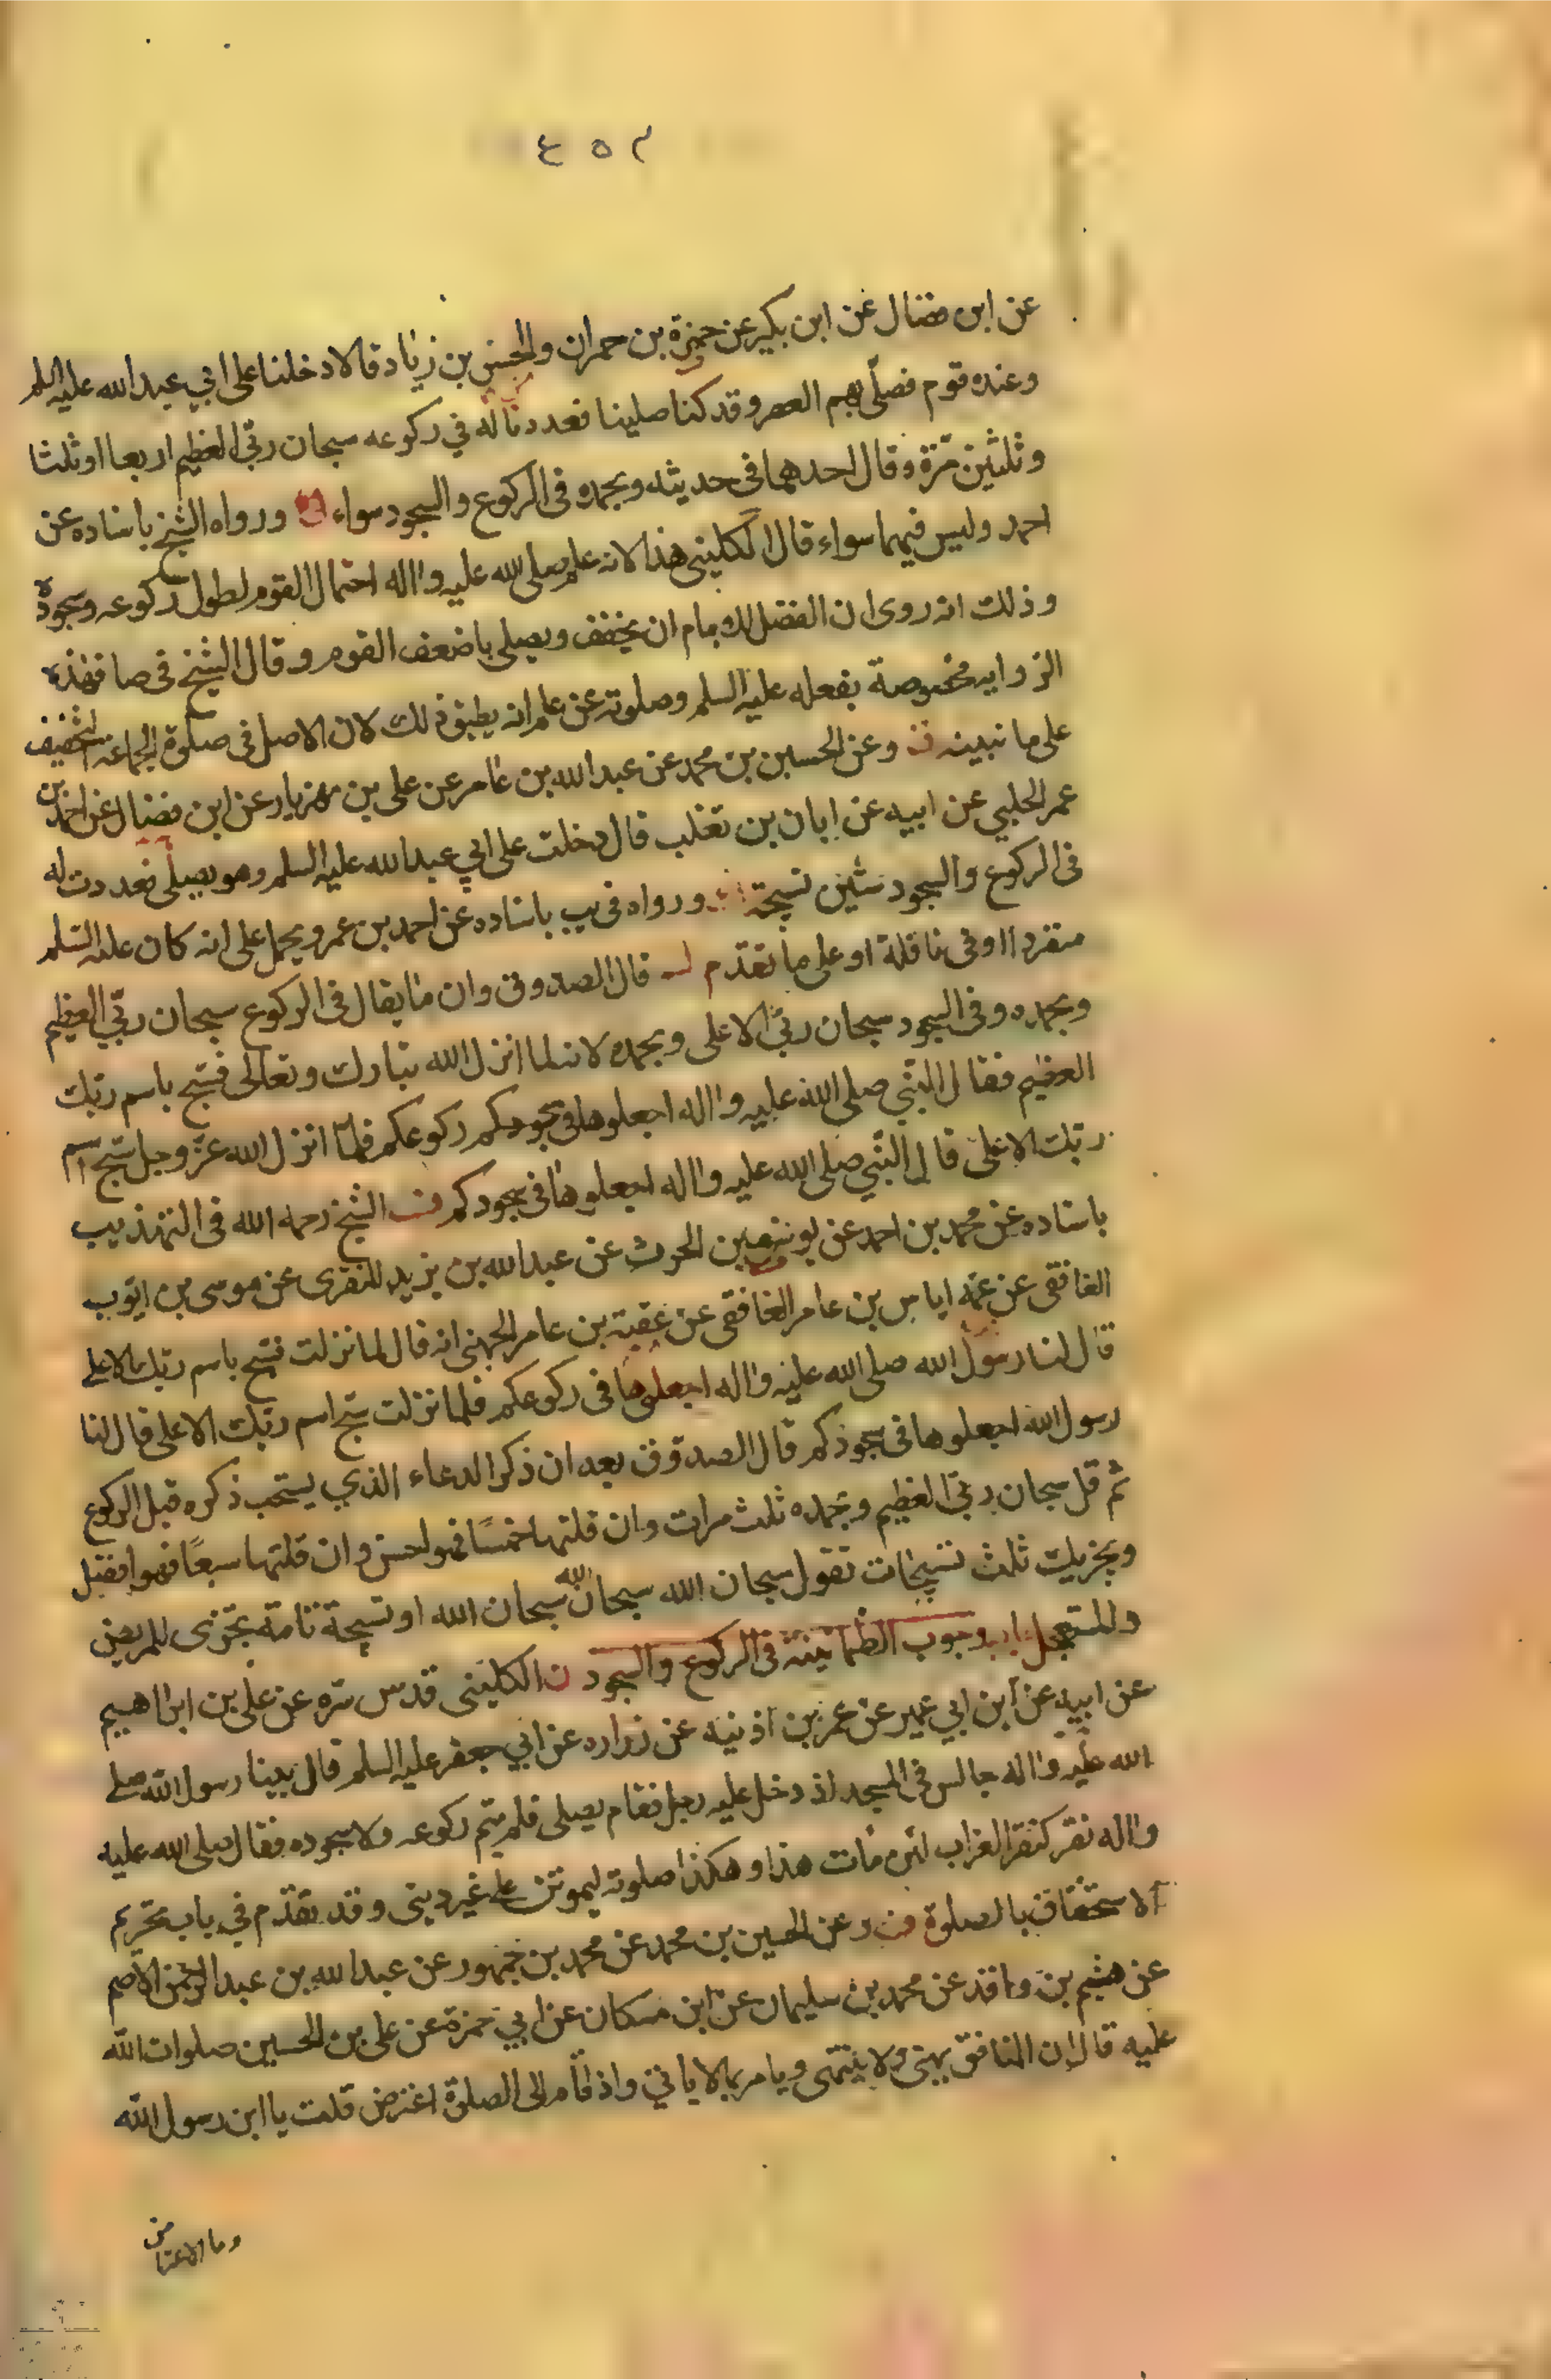 ٤٥٢
عن ابن فضال عن ابن بكير عن حمزة بن حمران والحسن بن زياد قالا دخلنا على ابي عبد الله عليه السلم
وعنده قوم فصلى بهم العصر وقد كنا صلينا فعددنا له في ركوعه سبحان ربي العظيم اربعا او ثلثا
وثلثين مرة وقال احدهما في حديثه وبحمده في الركوع والسجود سواء ورواه الشيخ باسناده عن
احمد وليس فيهما سواء قال الكليني هذا لانه علم صلى الله عليه واله احتمال القوم لطول ركوعه وسجوده
وذلك انه روى ان الفضل للامام ان يخفف ويصلي باضعف القوم وقال الشيخ في صا فهذه
الرواية مخصوصة بفعله عليه السلم وصلوته عن علم انه يطيق ذلك لان الاصل في صلوة الجماعة التخفيف
على ما نبينه وعن الحسين بن محمد عن عبد الله بن عامر عن علي بن مهزيار عن ابن فضال عن احمد بن
عمر الحلبي عن ابيه عن ابان بن تغلب قال دخلت على ابي عبد الله عليه السلم وهو يصلي فعددت له
في الركوع والسجود ستين تسبيحة ورواه في يب باسناده عن احمد بن عمر ويحمل على انه كان عليه السلم
منفردا او في نافلة او على ما تقدم قال الصدوق وان ما يقال في الركوع سبحان ربي العظيم
وبحمده وفي السجود سبحان ربي الاعلى وبحمده لانه لما انزل الله تبارك وتعالى فسبح باسم ربك
العظيم فقال النبي صلى الله عليه واله اجعلوها في سجودكم ركوعكم فلما انزل الله عز وجل سبح اسم
ربك الاعلى قال النبي صلى الله عليه واله اجعلوها في سجودكم الشيخ رحمه الله في التهذيب
باسناده عن محمد بن احمد عن يوسف بن الحرث عن عبد الله بن يزيد المنقرى عن موسى بن ايوب
الغافقى عن عمه اياس بن عامر الغافقى عن عقبة بن عامر الجهنى انه قال لما نزلت فسبح باسم ربك الاعلى
قال لنا رسول الله صلى الله عليه واله اجعلوها في ركوعكم فلما نزلت سبح اسم ربك الاعلى قال لنا
رسول الله اجعلوها في سجودكم قال الصدوق بعد ان ذكر الدعاء الذي يستحب ذكره قبل الركوع
ثم قل سبحان ربي العظيم وبحمده ثلث مرات وان قلتها خمسا فهو احسن وان قلتها سبعا فهو افضل
ويجزيك ثلث تسبيحات تقول سبحان الله سبحان الله سبحان الله او تسبيحة تامة تجزى للمريض
والمستعجل باب وجوب الطمانينة في الركوع والسجود ن الكليني قدس سره عن علي بن ابراهيم
عن ابيه عن ابن ابي عمير عن عمر بن اذنيه عن زراره عن ابي جعفر عليه السلم قال بينا رسول الله صلى
الله عليه واله جالس في المسجد اذ دخل عليه رجل فقام يصلي فلم يتم ركوعه ولا سجوده فقال صلى الله عليه
واله نقر كنقر الغراب لئن مات هذا وهكذا صلوته ليموتن على غير ديني وقد تقدم في باب تحريم
الاستخفاف بالصلوة وعن الحسين بن محمد عن محمد بن جمهور عن عبد الله بن عبد الرحمن الاصم
عن هشيم بن واقد عن محمد بن سليمان عن ابن مسكان عن ابي حمزة عن علي بن الحسين صلوات الله
عليه قال ان المنافق ينهى ولا ينتهى ويامر بما لا ياتي واذا قام الى الصلوة اعترض قلت يا ابن رسول الله
وما الاعتراض